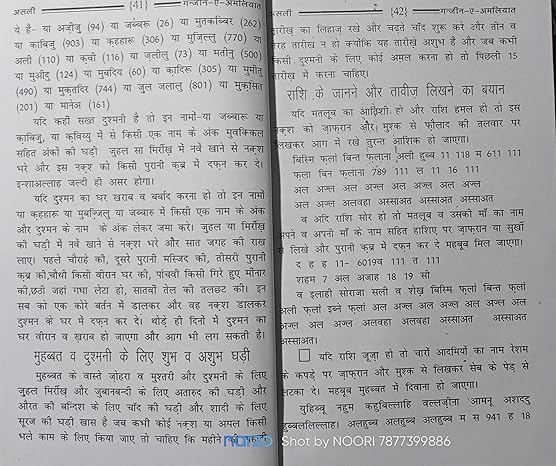 असली {41} गन्जीन-ए-अमलियात
ये है- या अज़ीजु (94) या जब्बरू (26) या मुतकब्बिर (262)
या क़ाबिजु (903) या क़हहारू (306) या मुजिल्लु (770) या
अली (110) या क़वी (116) या जलीलु (73) या मतीनु (500)
या मुऔदु (124) या मुबदिय (60) या क़ादिरू (305) या मुमीतु
(490) या मुक़तदिर (744) या जुल जलालु (801) या मुक़सित
(201) या मानेअ (161)
यदि कही सख्त दुश्मनी है तो इन नामो-या जब्बारू या
क़ाबिजु, या कवियु में से किसी एक नाम के अंक मुवक्किल
सहित अंको की घड़ी जुहल सा मिर्रीख़ में नवें खाने से नक़्श
भरे और इस नक़्श को किसी पुरानी क़ब्र में दफ़्न कर दे।
इन्शाअल्लाह जल्दी ही असर होगा।
यदि दुश्मन का घर खराब व बर्बाद करना हो तो इन नामों
या क़हहारू या मुबज़िलु या जब्बारु में किसी एक नाम के अंक
और दुश्मन के नाम के अंक लेकर जमा करे। जुहल या मिर्रीख़
की घड़ी में नवें खाने से नक़्श भरे और सात जगह की राख
लाए। पहले चौराहे की, दूसरे पुरानी मस्जिद की, तीसरी पुरानी
क़ब्र की,चौथी किसी वीरान घर की, पांचवी किसी गिरे हुए मीनार
की,छठी जहां गधा लेटा हो, सातवी तेल की तलछट की। इन
सब को एक कोरे बर्तन में डालकर और वह नक़्श डालकर
दुश्मन के घर में दफ़्न कर दे। थोड़े ही दिनों में दुश्मन का
घर वीरान व ख़राब हो जाएगा और आग भी लग सकती है।
मुहब्बत व दुश्मनी के लिए शुभ व अशुभ घड़ी
मुहब्बत के वास्ते ज़ोहरा व मुश्तरी और दुश्मनी के लिए
जुहल मिर्रीख़ और जुबानबन्दी के लिए अतारुद की घड़ी और
औरत की बन्दिश के लिए चाँद की घड़ी और शादी के लिए
सूरज की घड़ी खास है जब कभी कोई नक़्श या अमल किसी
भले काम के लिए किया जाए तो चाहिए कि महीने की
असली {42} गन्जीन-ए-अमलियात
तारीख का लिहाज़ रखे और चढ़ते चाँद शुरू करे और तीन व
तेरह तारीख न हो क्योंकि यह तारीखे अशुभ है और जब कभी
किसी दुश्मनी के लिए कोई अमल करना हो तो पिछली 15
तारीख़ में करना चाहिए।
राशि के जानने और तावीज़ लिखने का बयान
यदि मतलूब का आतिशी हो और राशि हमल हो तो इस
नक़्श को ज़ाफ़रान और मुश्क से फौलाद की तलवार पर
लिखकर आग में रखे तुरन्त आशिक हो जाएगा।
बिस्मि फ़ला बिन्त फ़लाना अली हुब्ब 11 118 म 611 111
फ़ला बिन फ़लाना 789 111 ल 11 16 111
अल अज्ल अल अज्ल अल अज्ल अल अज्ल
अल अज्ल अलवहा अस्साअत अस्साअत अस्साअत
व अदि राशि सोर हो तो मतलूब व उसकी माँ का नाम
अपने व अपनी माँ के नाम सहित हाशिए पर ज़ाफ़रान या सुर्खी
से लिखे और पुरानी क़ब्र में दफ़न कर दे महबूब मिल जाएगा।
द ह ह 11- 6019व 111 त 111
शहम 7 अल अजाह 18 19 सी
व इलाही सोराजा सली व शेख़ बिस्मि फ़लां बिन्त फ़लां
अली फ़लां इब्ने फ़लां अल अज्ल अल अज्ल अल अज्ल अल
अज्ल अल अज्ल अल अज्ल अलवहा अलवहा अस्साअत अस्साअत
अस्साअत।
यदि राशि जूज़ा हो तो चारों आदमियों का नाम रेशम
के कपड़े पर ज़ाफ़रान और मुश्क से लिखकर सेब के पेड़ पर
लटका दे। महबूब मुहब्बत में दिवाना हो जाएगा।
युहिब्बू नहुम कहुबिल्लाहि वल्लज़ीना आमनू अशददु
हुब्बललिल्लाह। अलहुब्ब अलहुब्ब अलहुब्ब म स 941 ह 18
narzo Shot by NOORI 7877399886